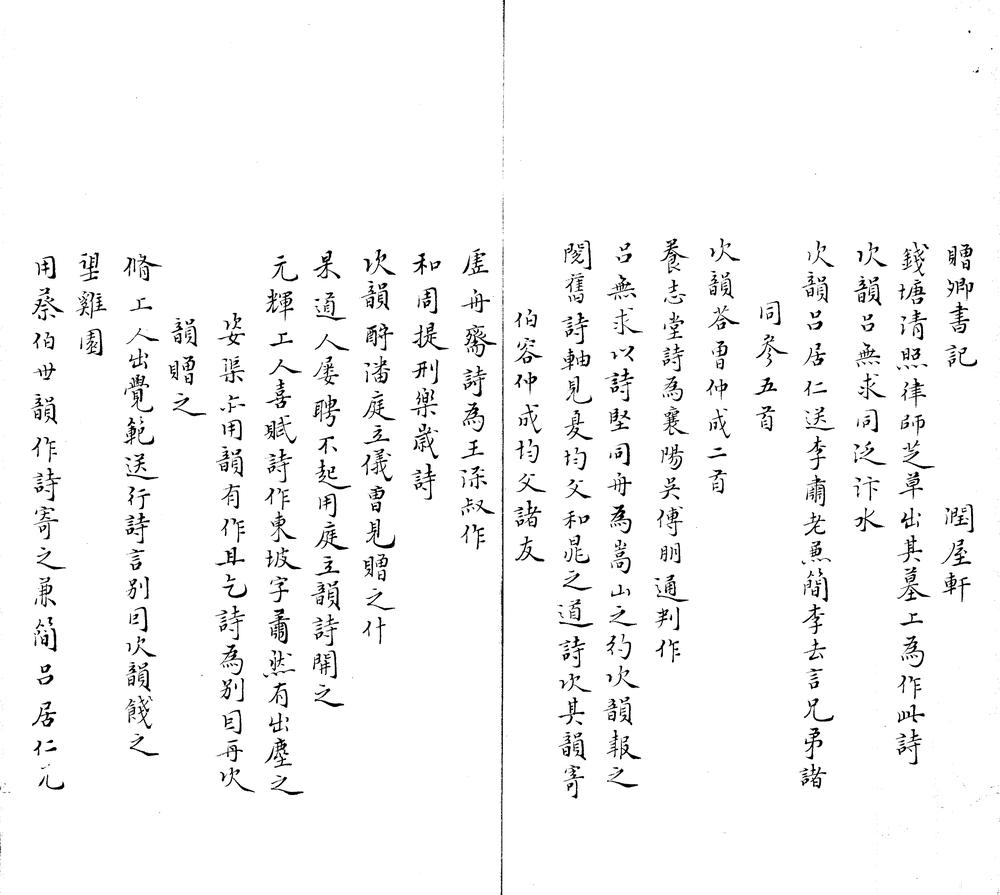 贈卿書記　潤屋軒
錢塘清照律師芝草出其墓上為作此詩
次韻呂無求同泛汴水
次韻呂居仁送李肅老兼簡李去言兄弟諸
同參五首
次韻荅曺仲成二首
養志堂詩為襄陽吳傅朋通判作
呂無求以詩堅同舟為嵩山之約次韻報之
閱舊詩軸見夏均父和晁之道詩次其韻寄
伯容仲成均父諸友
虛舟齋詩為王深叔作
和周提刑樂歲詩
次韻酧潘庭立儀曹見贈之什
杲道人屢聘不起用庭立韻詩開之
元輝工人喜賦詩作東坡字肅然有出塵之
姿渠亦用韻有作且乞詩為別因再次
韻贈之
脩工人出覺範送行詩言別因次韻餞之
㘶雞園
用蔡伯世韻作詩寄之兼簡呂居仁元